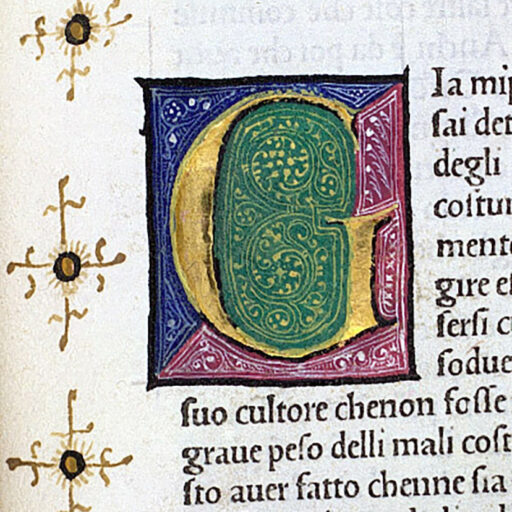 GIa mip
sai det
degli
costur
mente
gire es
sersi cu
sodue
suo cultore chenon fosse
graue peso delli mali cost
sto auer fatto chenne sia